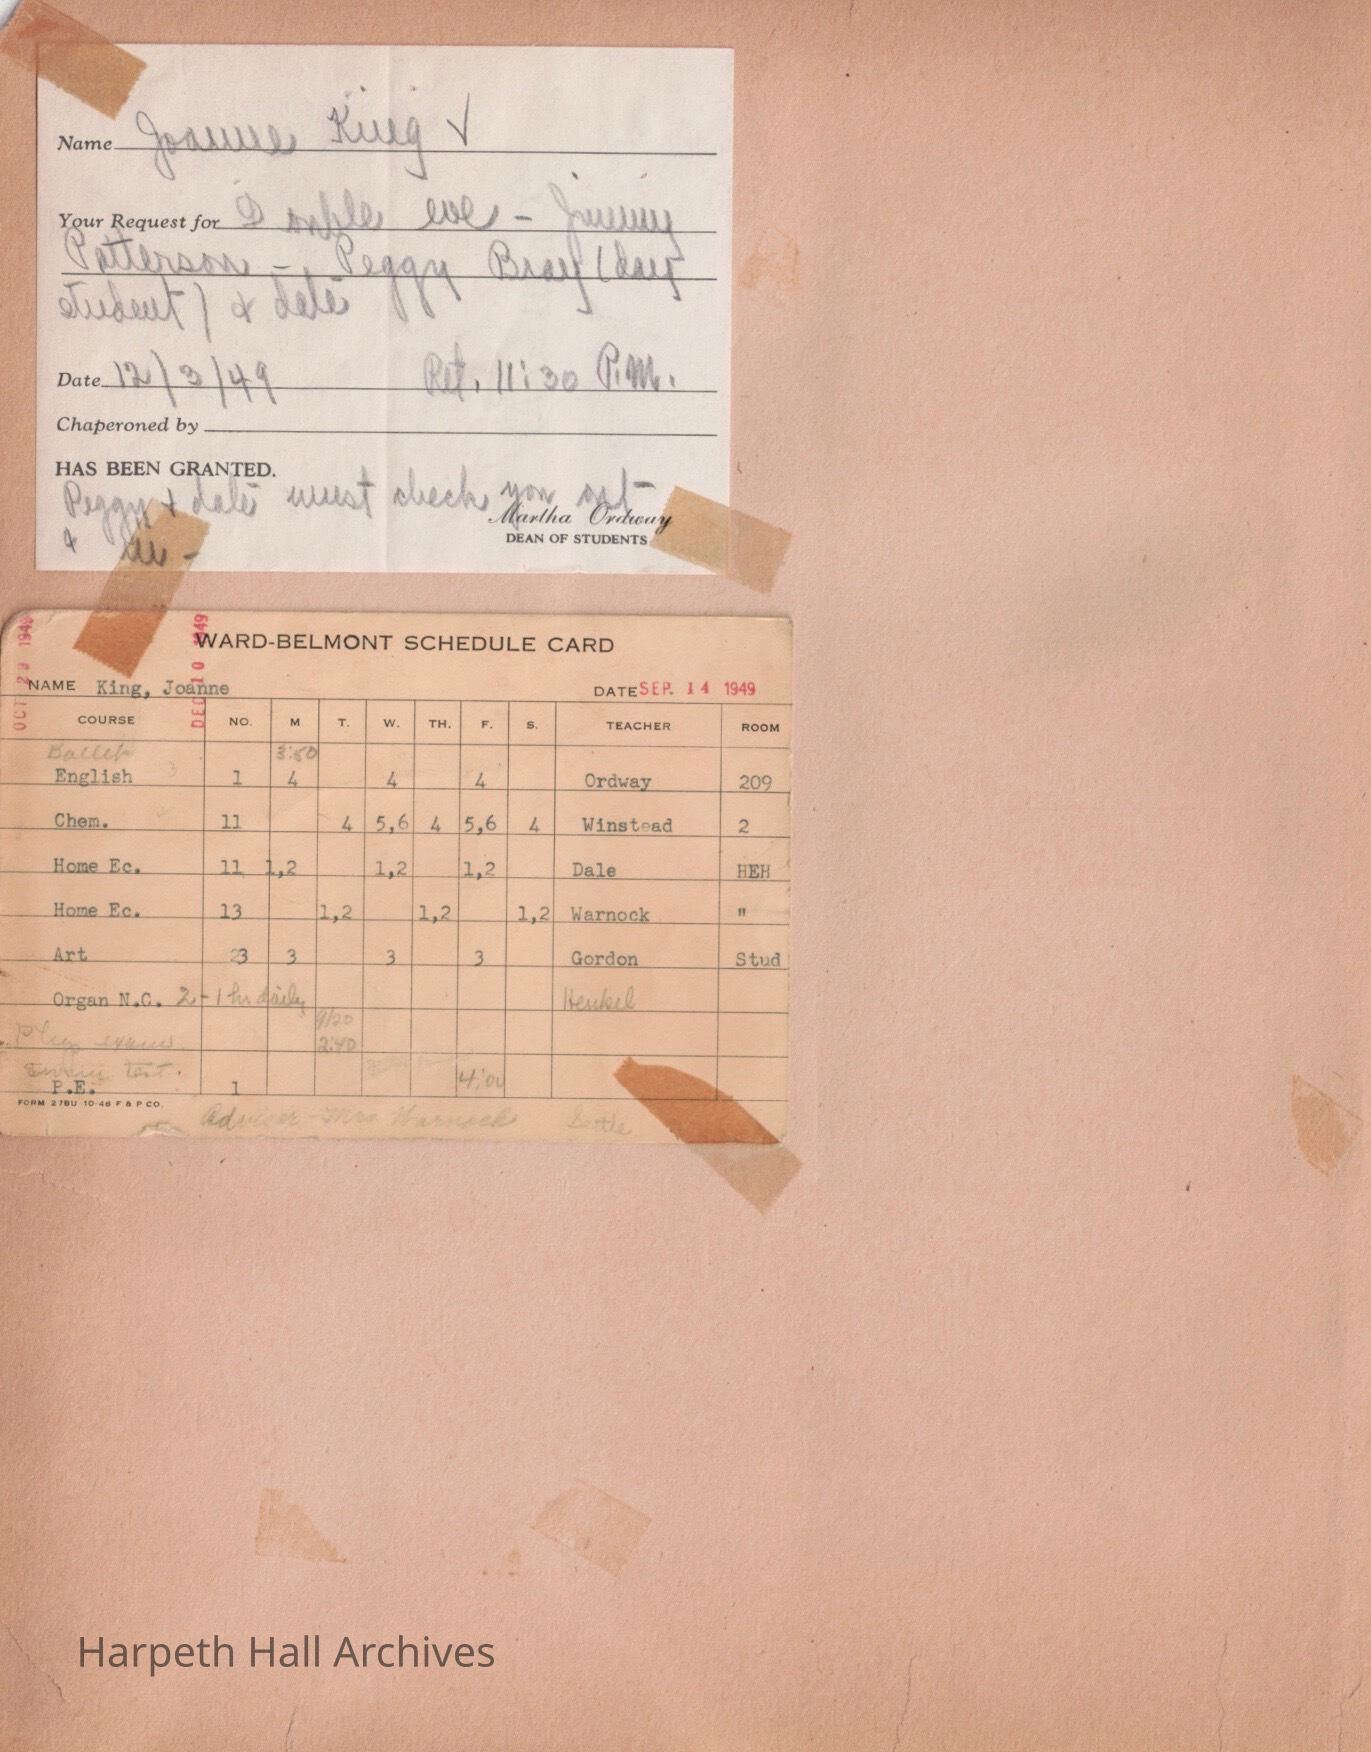 Name Joanne King ✓
Your Request for Double eve - Jimmy
Patterson - Peggy Bray (day
student) & date
Date 12/3/49 Ret. 11:30 P.M.
Chaperoned by
HAS BEEN GRANTED.
Peggy & date must check you out
& in -
Martha Ordway
DEAN OF STUDENTS
OCT 1949
DEC 10 1949
WARD-BELMONT SCHEDULE CARD
NAME King, Joanne DATE SEP. 14 1949
COURSE NO. M T. W. TH. F. S. TEACHER ROOM
Ballet 3:50
English 1 4 4 4 Ordway 209
Chem. 11 4 5,6 4 5,6 4 Winstead 2
Home Ec. 11 1,2 1,2 1,2 Dale HEH
Home Ec. 13 1,2 1,2 1,2 Warnock "
Art 23 3 3 3 Gordon Stud
Organ N.C. 2 - 1 hr daily Henkel
9/20
Phy exam. 2:40
Swim test. 4:00
P.E. 1
FORM 27BU 10-48 F & P CO.
Adviser - Mrs Warnock
Harpeth Hall Archives